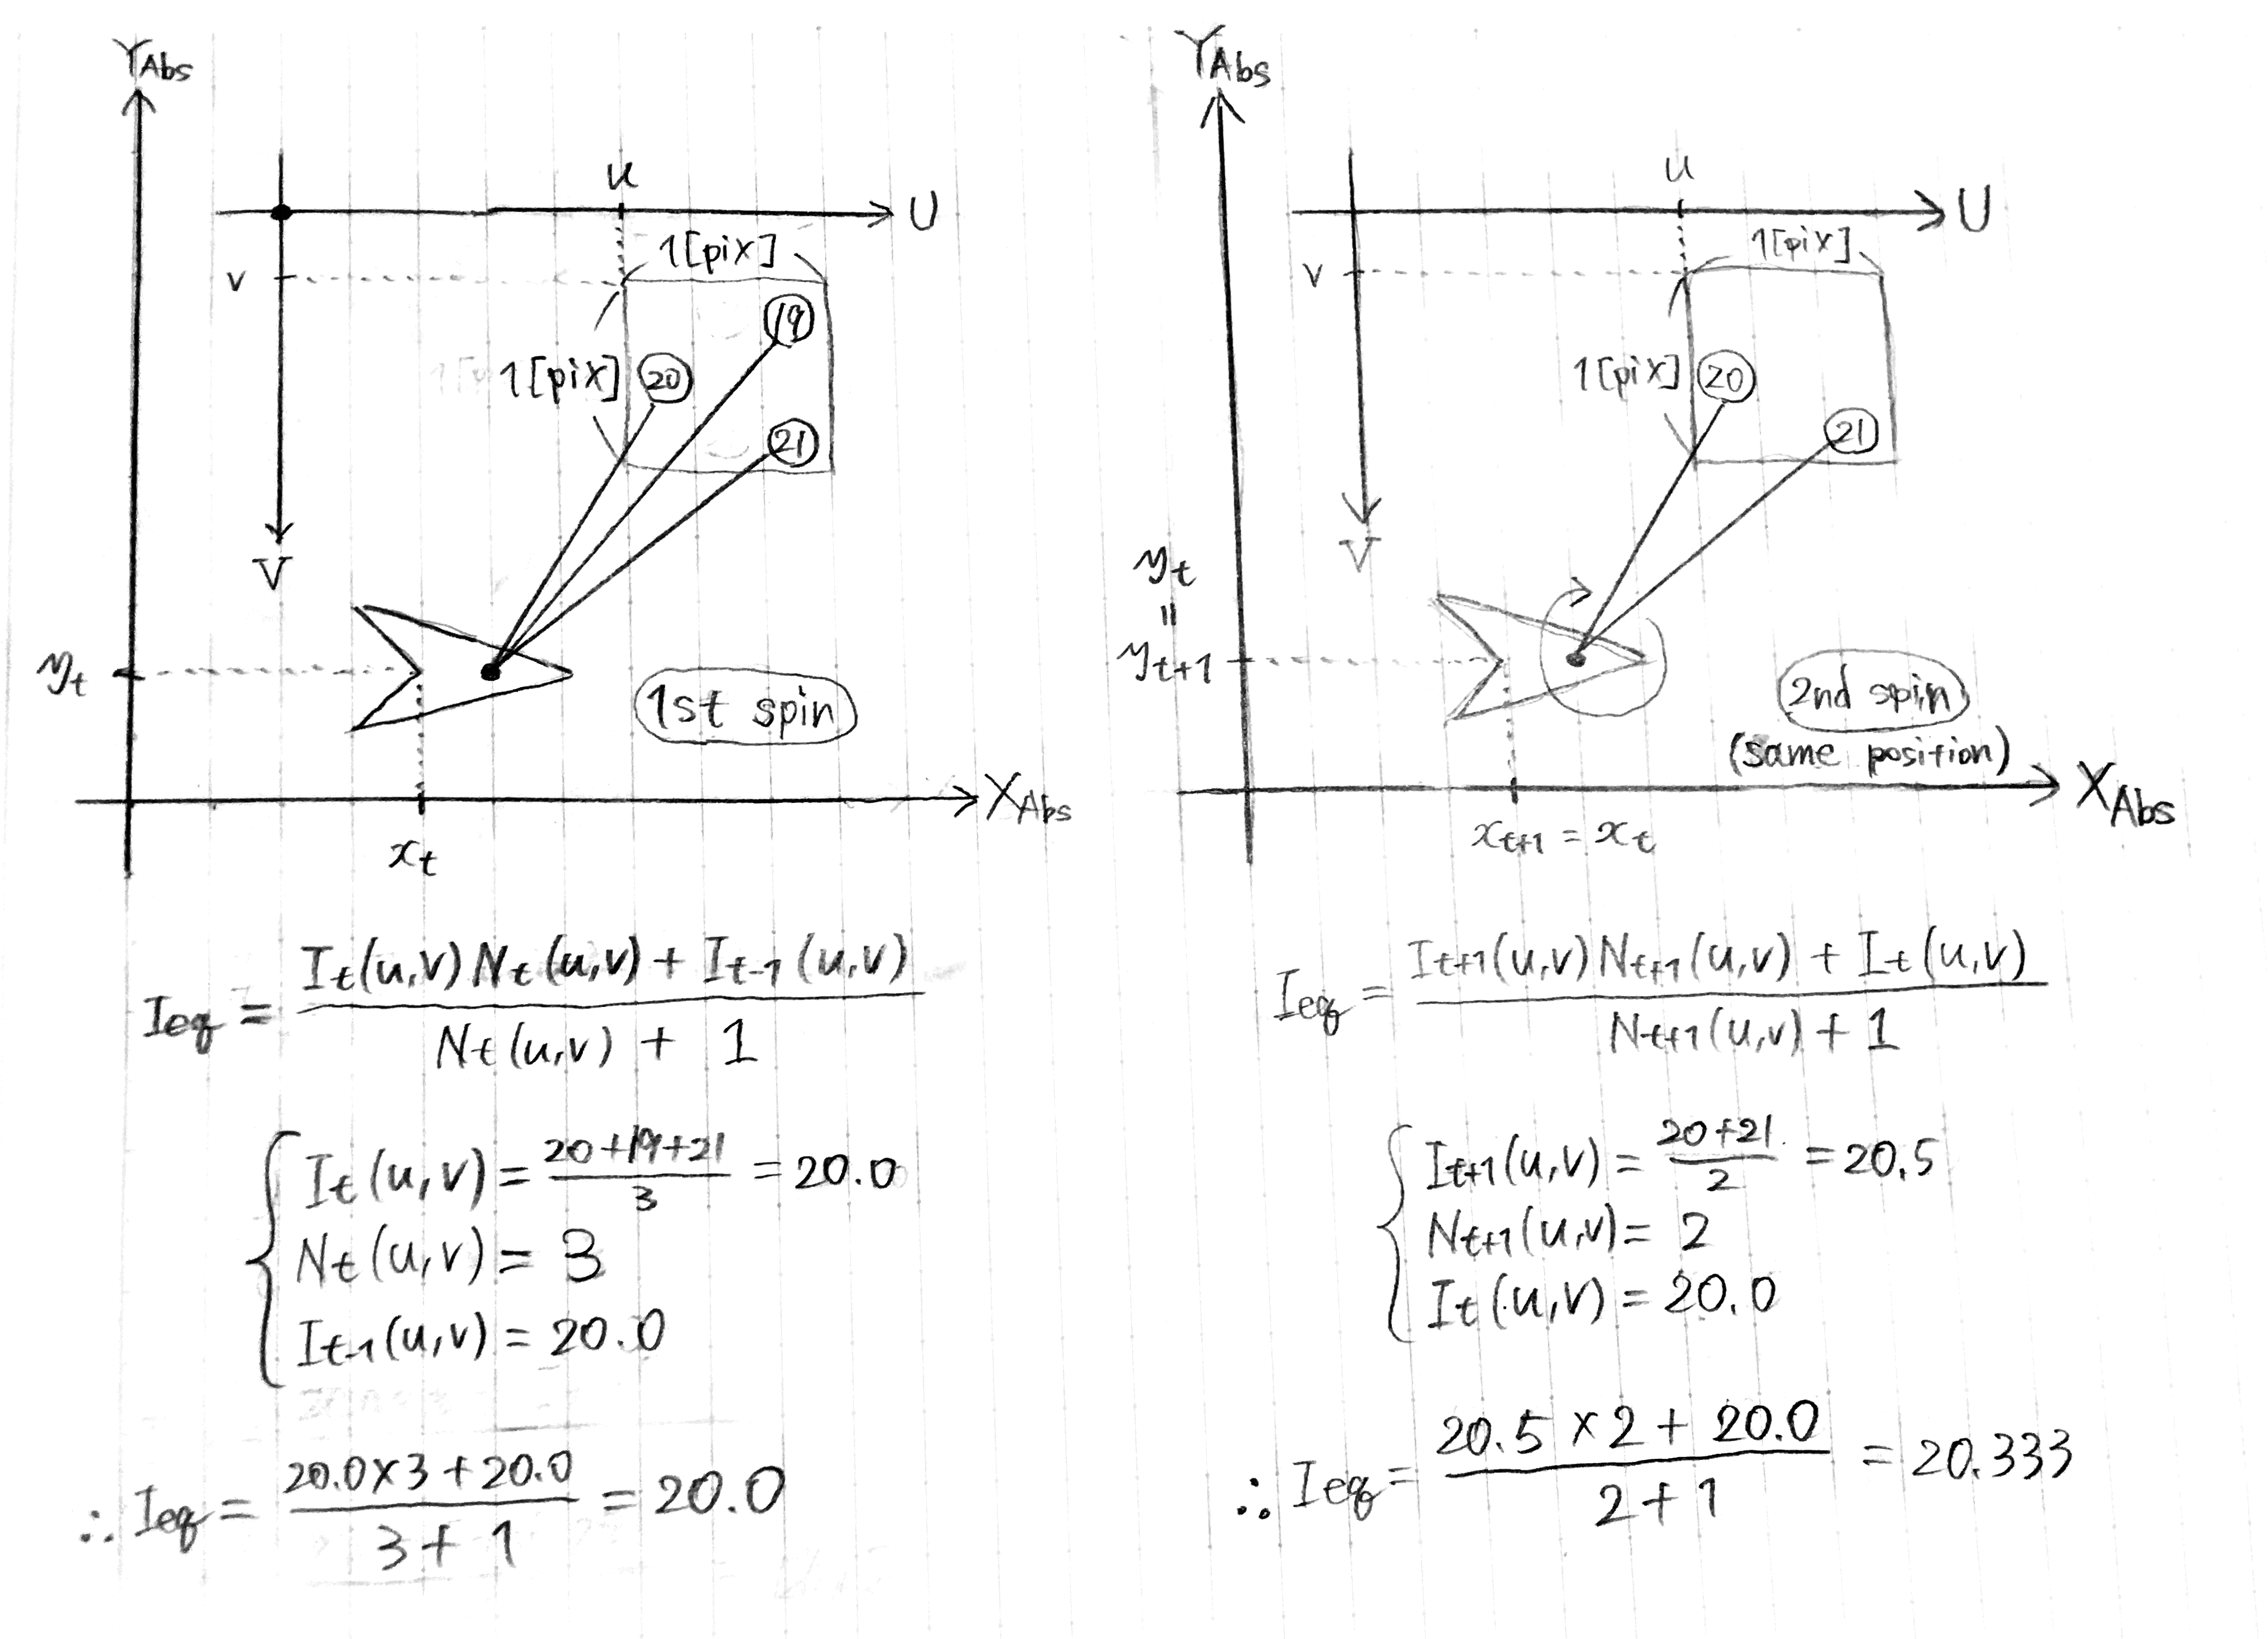 Y_Abs
u
U
1[pix]
v
19
1[pix]
20
21
V
y_t
1st spin
X_Abs
x_t
I_eq = (I_t(u,v) N_t(u,v) + I_t-1(u,v)) / (N_t(u,v) + 1)
I_t(u,v) = (20+19+21) / 3 = 20.0
N_t(u,v) = 3
I_t-1(u,v) = 20.0
∴ I_eq = (20.0×3+20.0) / (3+1) = 20.0
Y_Abs
u
U
1[pix]
v
1[pix]
20
21
V
y_t
=
y_t+1
2nd spin
(same position)
X_Abs
x_t+1 = x_t
I_eq = (I_t+1(u,v) N_t+1(u,v) + I_t(u,v)) / (N_t+1(u,v) + 1)
I_t+1(u,v) = (20+21) / 2 = 20.5
N_t+1(u,v) = 2
I_t(u,v) = 20.0
∴ I_eq = (20.5 × 2 + 20.0) / (2+1) = 20.333